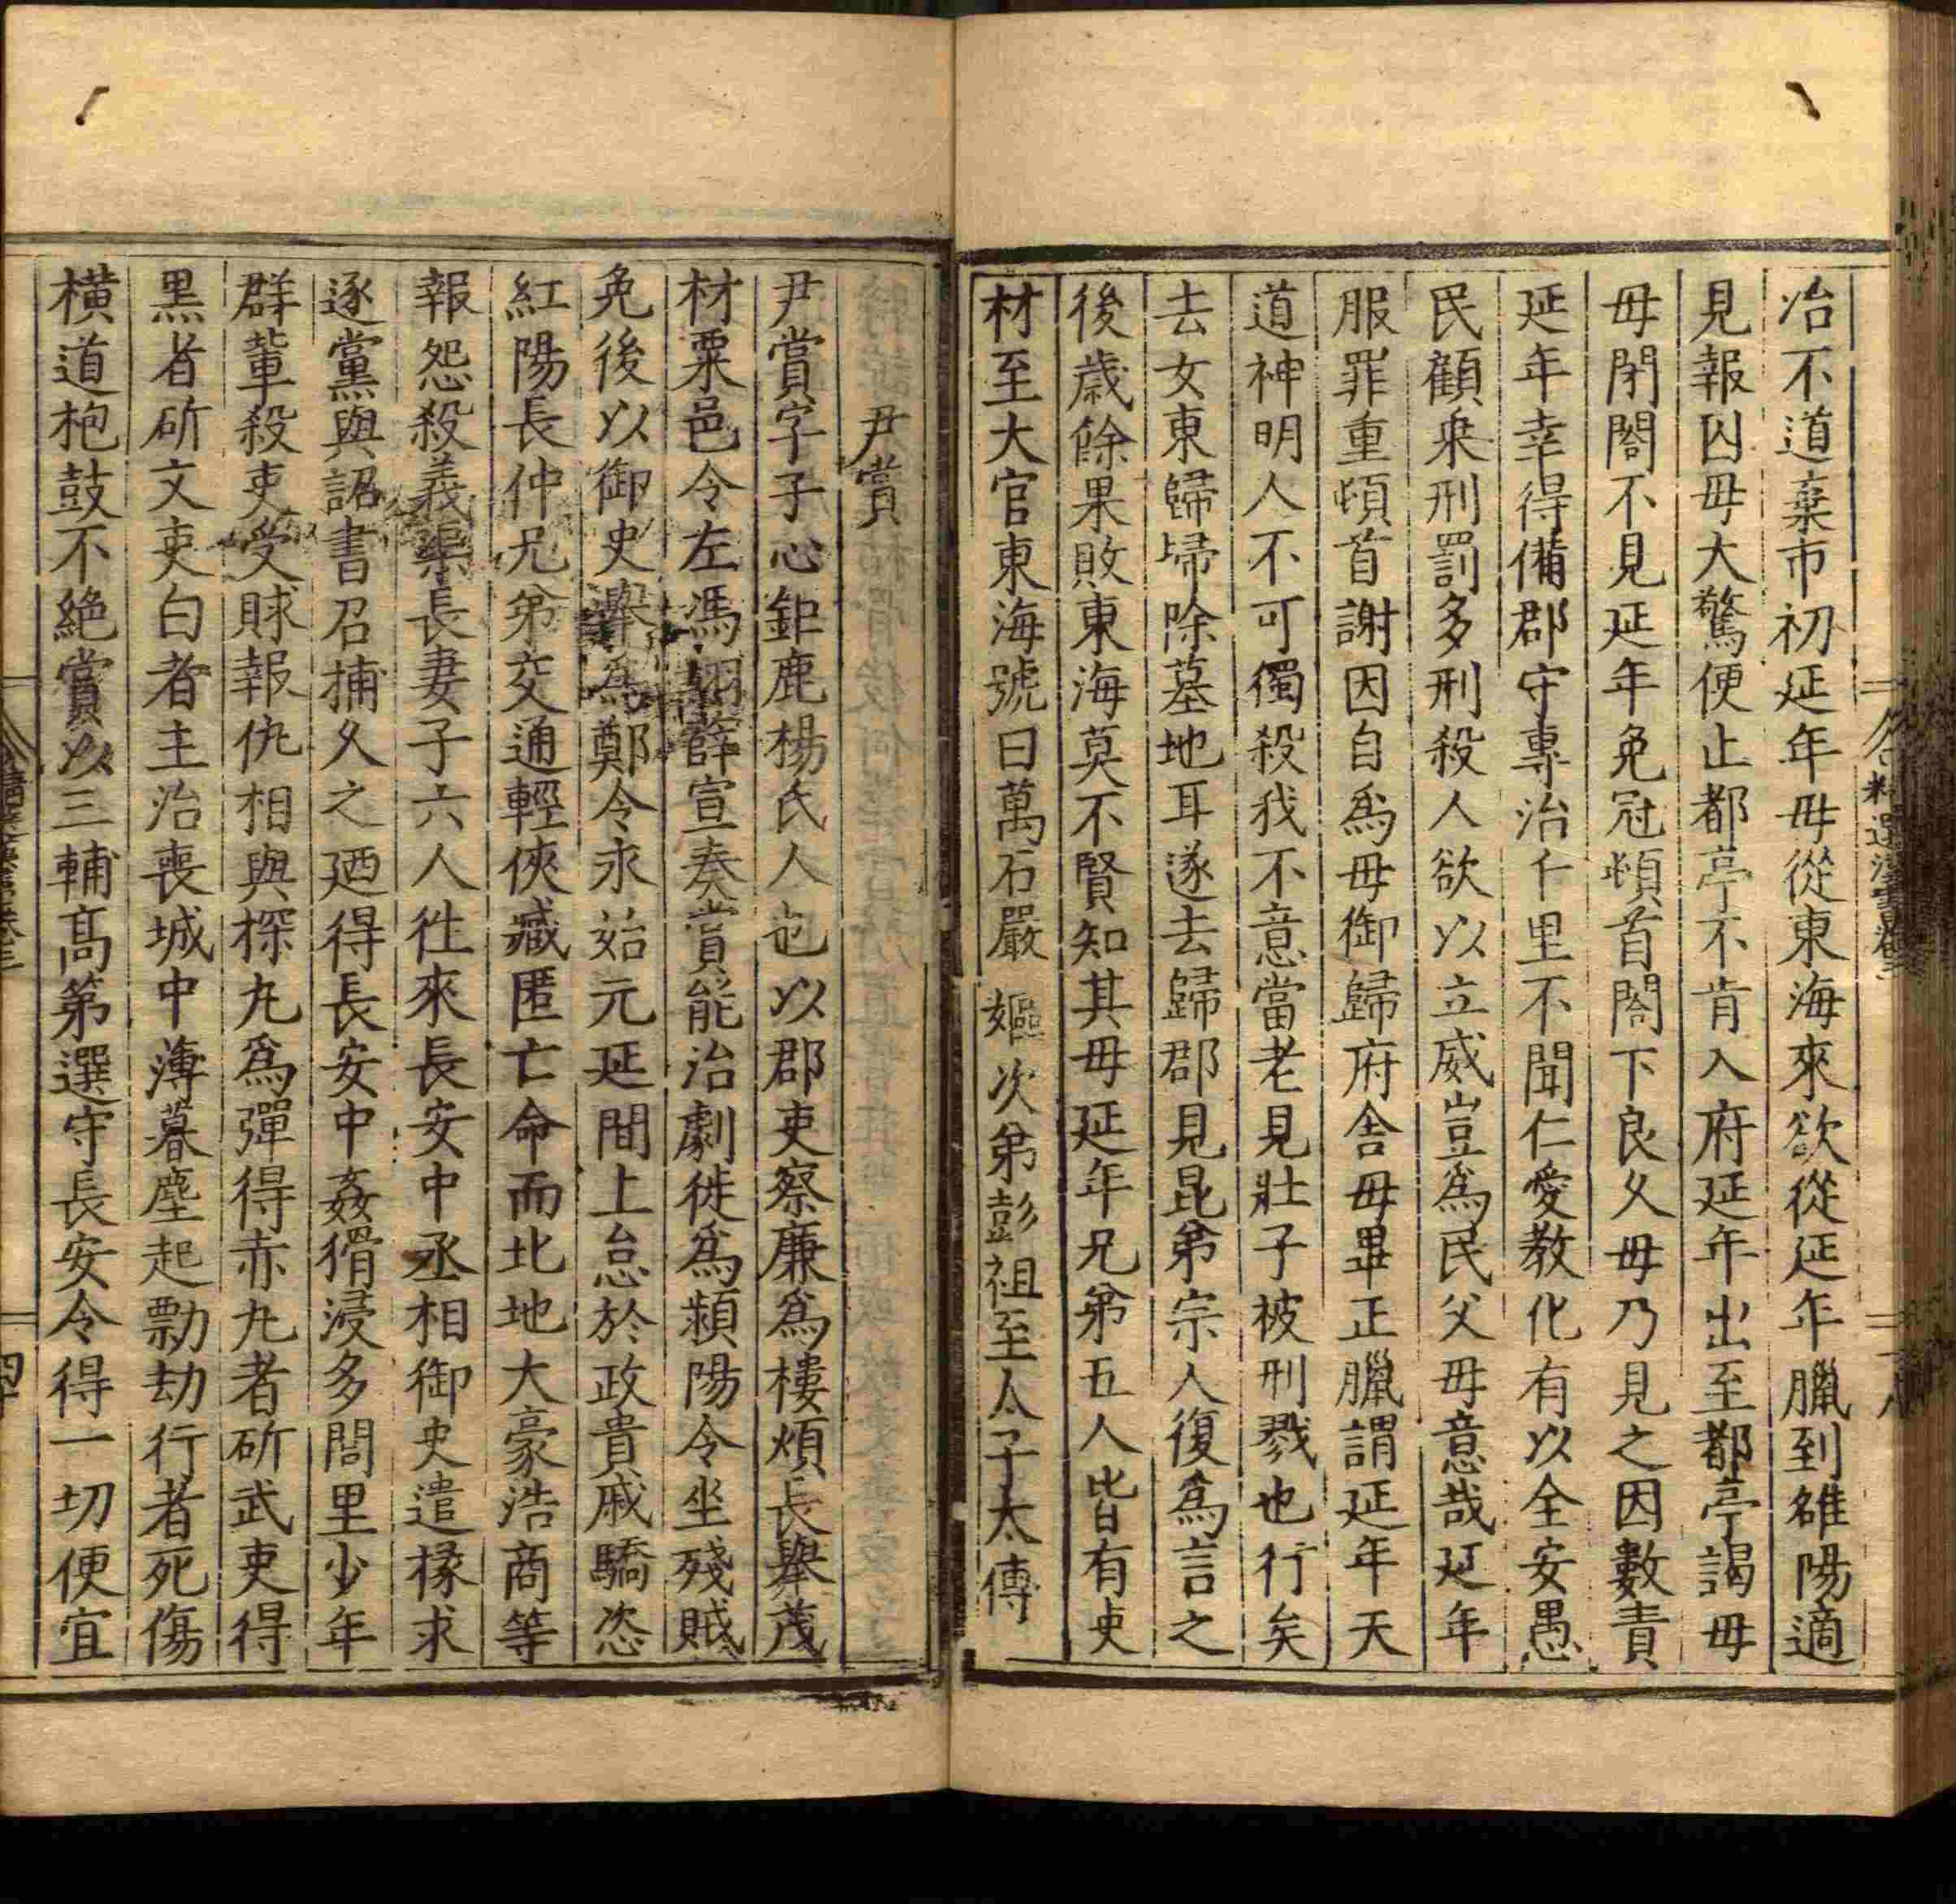 冶不道棄市初延年毋從東海來欲從延年臘到雒陽適
見報囚毋大驚便止都亭不肯入府延年出至都亭謁毋
毋閉閤不見延年免冠頓首閤下良乆毋乃見之因數責
延年幸得備郡守專治千里不聞仁愛教化有以全安愚
民顧乗刑罰多刑殺人欲以立威豈爲民父毋意哉延年
服罪重頓首謝因自爲毋御歸府舎毋畢正臘謂延年天
道神明人不可獨殺我不意當老見壯子被刑戮也行矣
去女東歸埽除墓地耳遂去歸郡見昆弟宗人復爲言之
後歲餘果敗東海莫不賢知其毋延年兄弟五人皆有吏
材至大官東海號曰萬石嚴嫗次弟彭祖至太子太傅
尹賞
尹賞字子心鉅鹿楊氏人也以郡吏察廉爲樓煩長舉茂
材粟邑令左馮翊薛宣奏賞能治劇徙爲頻陽令坐殘賊
免後以御史舉爲鄭令永始元延間上怠於政貴戚驕恣
紅陽長仲兄弟交通輕俠藏匿亡命而北地大豪浩商等
報怨殺義渠長妻子六人徃來長安中丞相御史遣掾求
逐黨與詔書召捕乆之廼得長安中姦猾浸多閭里少年
群輩殺吏受賕報仇相與探丸爲彈得赤丸者斫武吏得
黒者斫文吏白者主治喪城中薄暮塵起剽劫行者死傷
橫道枹鼓不絶賞以三輔髙第選守長安令得一切便宜